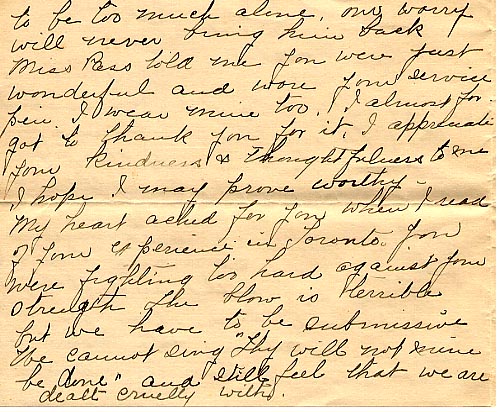 to be too much alone, our worry
will never bring him back
Miss Pess told me you were just
wonderful and wore your service
pin. I wear mine too. I almost for-
got to thank you for it, I appreciate
your kindness & thoughtfulness to me
I hope I may prove worthy -
My heart ached for you when I read
of your experience in Toronto. You
were fighting too hard against your
strength The blow is terrible
but we have to be submissive
We cannot sing "Thy will not mine
be done" and still feel that we are
dealt cruelly with.